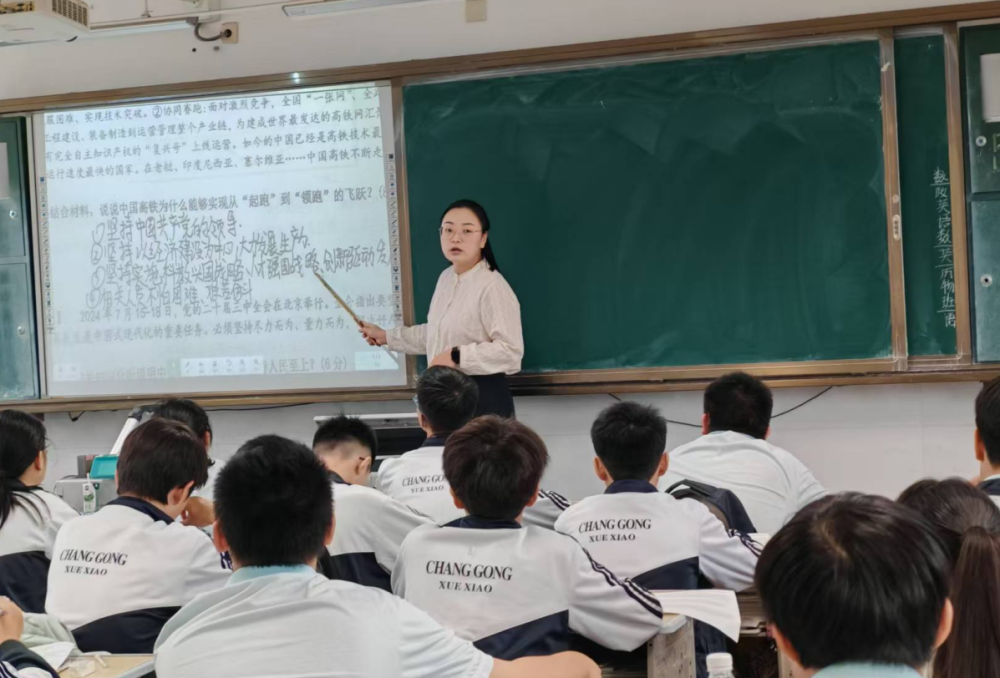 展困难，实现技术突破。②协同赛跑：面对激烈竞争，全国“一张网”、全
工程建设、装备制造到运营管理整个产业链，为建成世界最发达的高铁网汇
有完全自主知识产权的“复兴号”上线运营。如今的中国已经是高铁技术最
运行速度最快的国家。在老挝、印度尼西亚、塞尔维亚……中国高铁不断走
结合材料，说说中国高铁为什么能够实现从“起跑”到“领跑”的飞跃？
①坚持中国共产党的领导.
②坚持以经济建设为中心，大力发展生产力.
③坚持实施科教兴国战略、人才强国战略、创新驱动发
2024年7月15-18日，党的二十届三中全会在北京举行。
中国式现代化的重要任务。必须坚持尽力而为、量力而为，
人民至上？（6分）
数政英语数英历物班
CHANG GONG
XUE XIAO
CHANG GONG
XUE XIAO
CHANG GONG
XUE XIAO
CHANG GONG
XUE XIAO